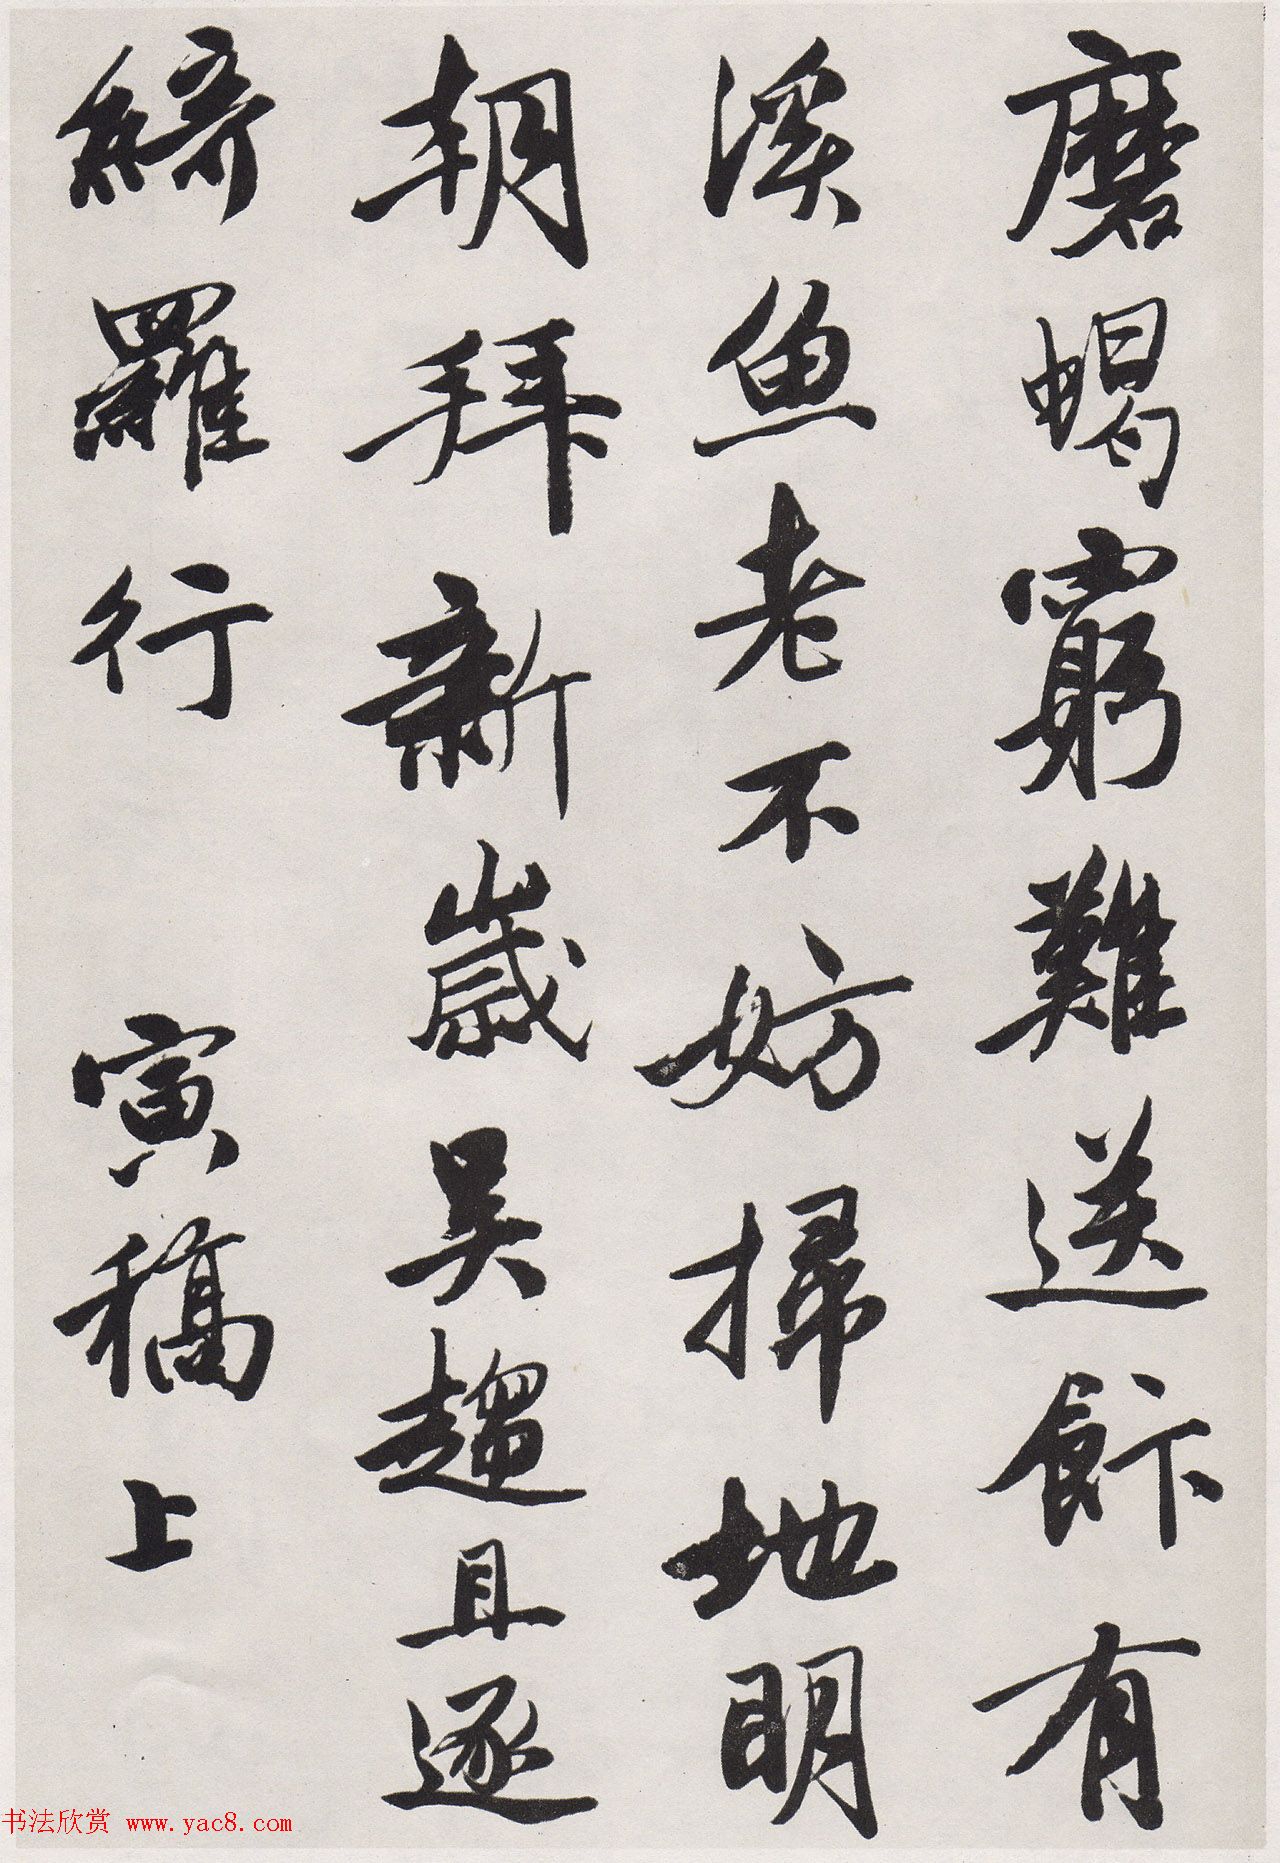 磨蝎窮難送飰有
溪魚老不妨掃地明
朝拜新歲吳趨且逐
綺羅行 寅稿上
书法欣赏 www.yac8.com